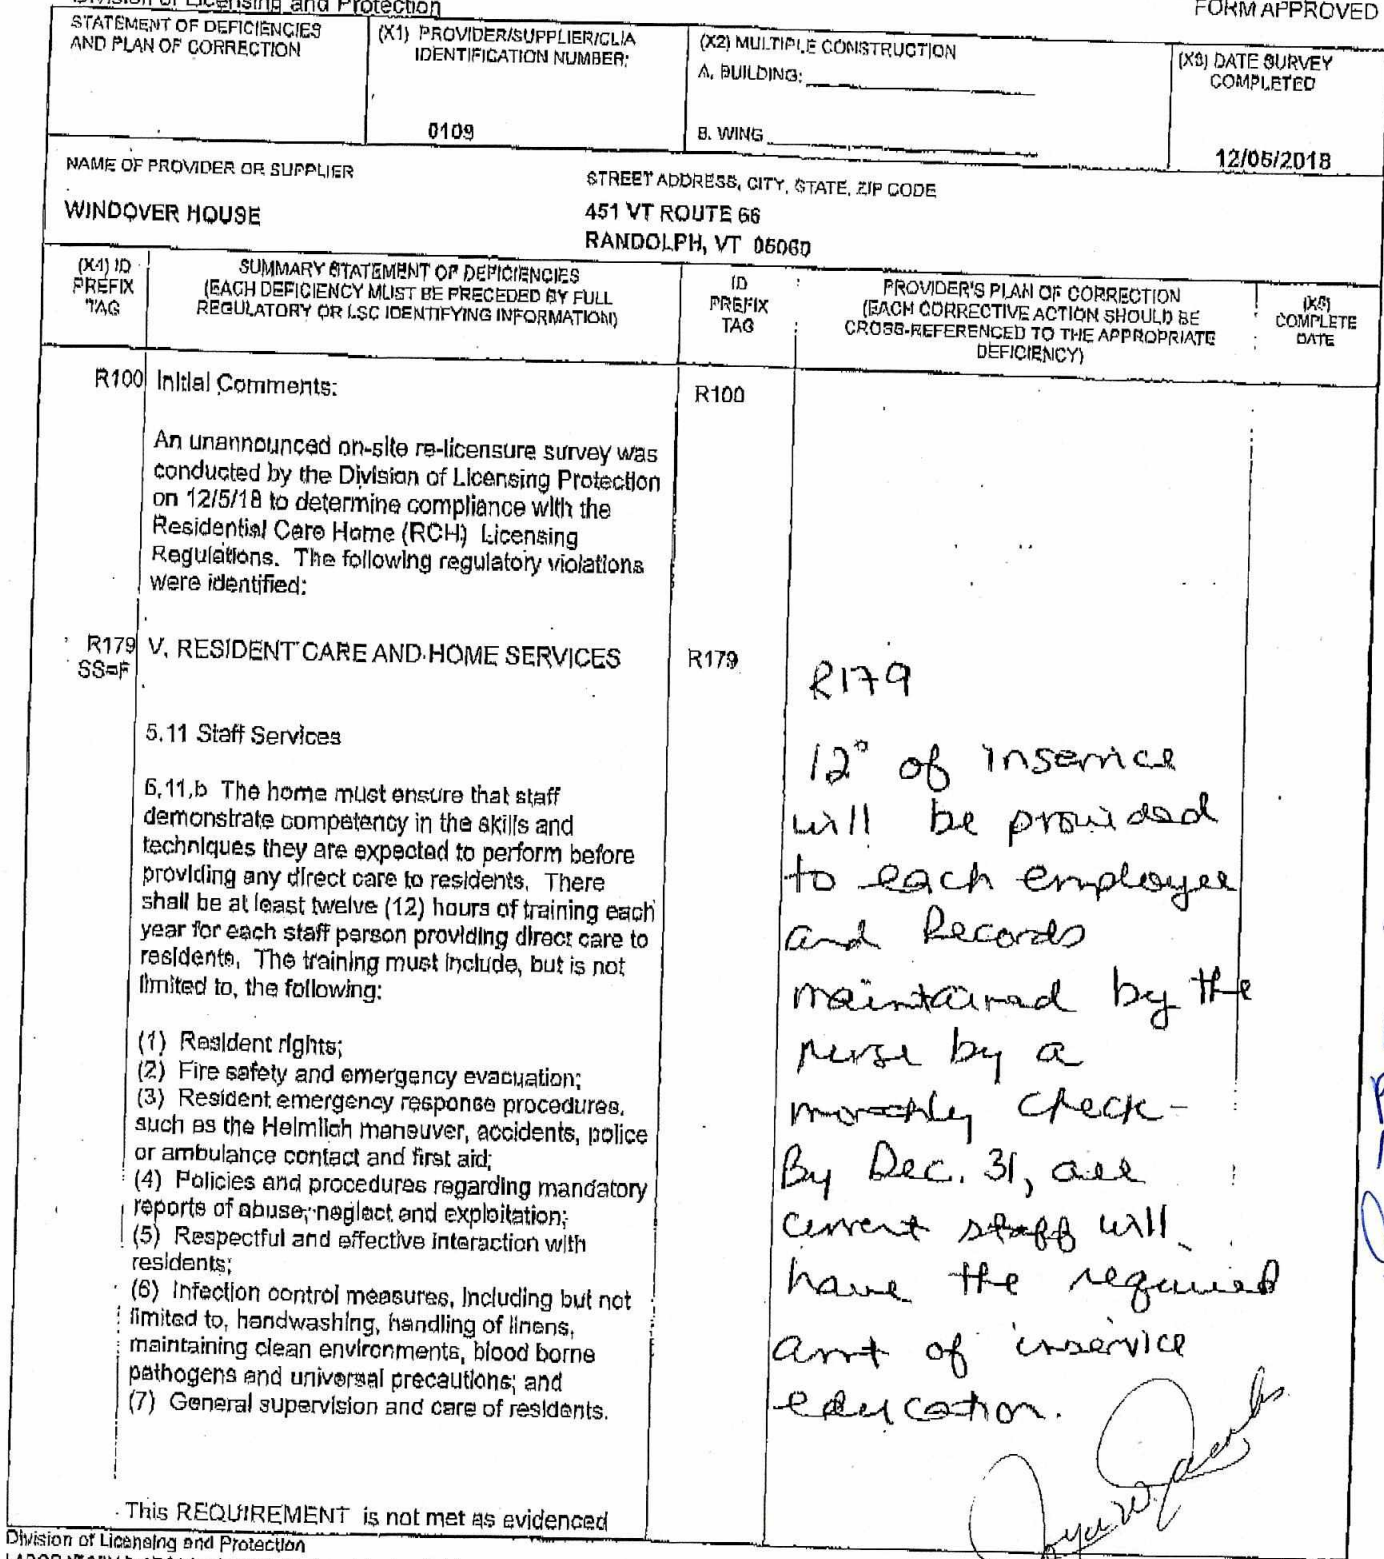 Division of Licensing and Protection
FORM APPROVED
STATEMENT OF DEFICIENCIES
AND PLAN OF CORRECTION
(X1) PROVIDER/SUPPLIER/CLIA
IDENTIFICATION NUMBER:
0109
(X2) MULTIPLE CONSTRUCTION
A. BUILDING:
B. WING
(X3) DATE SURVEY
COMPLETED
12/05/2018
NAME OF PROVIDER OR SUPPLIER
WINDOVER HOUSE
STREET ADDRESS, CITY, STATE, ZIP CODE
451 VT ROUTE 66
RANDOLPH, VT 05060
(X4) ID
PREFIX
TAG
SUMMARY STATEMENT OF DEFICIENCIES
(EACH DEFICIENCY MUST BE PRECEDED BY FULL
REGULATORY OR LSC IDENTIFYING INFORMATION)
ID
PREFIX
TAG
PROVIDER'S PLAN OF CORRECTION
(EACH CORRECTIVE ACTION SHOULD BE
CROSS-REFERENCED TO THE APPROPRIATE
DEFICIENCY)
(X5)
COMPLETE
DATE
R100 Initial Comments:
R100
An unannounced on-site re-licensure survey was
conducted by the Division of Licensing Protection
on 12/5/18 to determine compliance with the
Residential Care Home (RCH) Licensing
Regulations. The following regulatory violations
were identified:
R179 V. RESIDENT CARE AND HOME SERVICES
SS=F
R179
5.11 Staff Services
5.11.b The home must ensure that staff
demonstrate competency in the skills and
techniques they are expected to perform before
providing any direct care to residents. There
shall be at least twelve (12) hours of training each
year for each staff person providing direct care to
residents. The training must include, but is not
limited to, the following:
(1) Resident rights;
(2) Fire safety and emergency evacuation;
(3) Resident emergency response procedures,
such as the Heimlich maneuver, accidents, police
or ambulance contact and first aid;
(4) Policies and procedures regarding mandatory
reports of abuse, neglect and exploitation;
(5) Respectful and effective interaction with
residents;
(6) Infection control measures, including but not
limited to, handwashing, handling of linens,
maintaining clean environments, blood borne
pathogens and universal precautions; and
(7) General supervision and care of residents.
This REQUIREMENT is not met as evidenced
R179
12° of inservice
will be provided
to each employee
and Records
maintained by the
nurse by a
monthly check-
By Dec. 31, all
current staff will
have the required
amt of inservice
education.
Division of Licensing and Protection